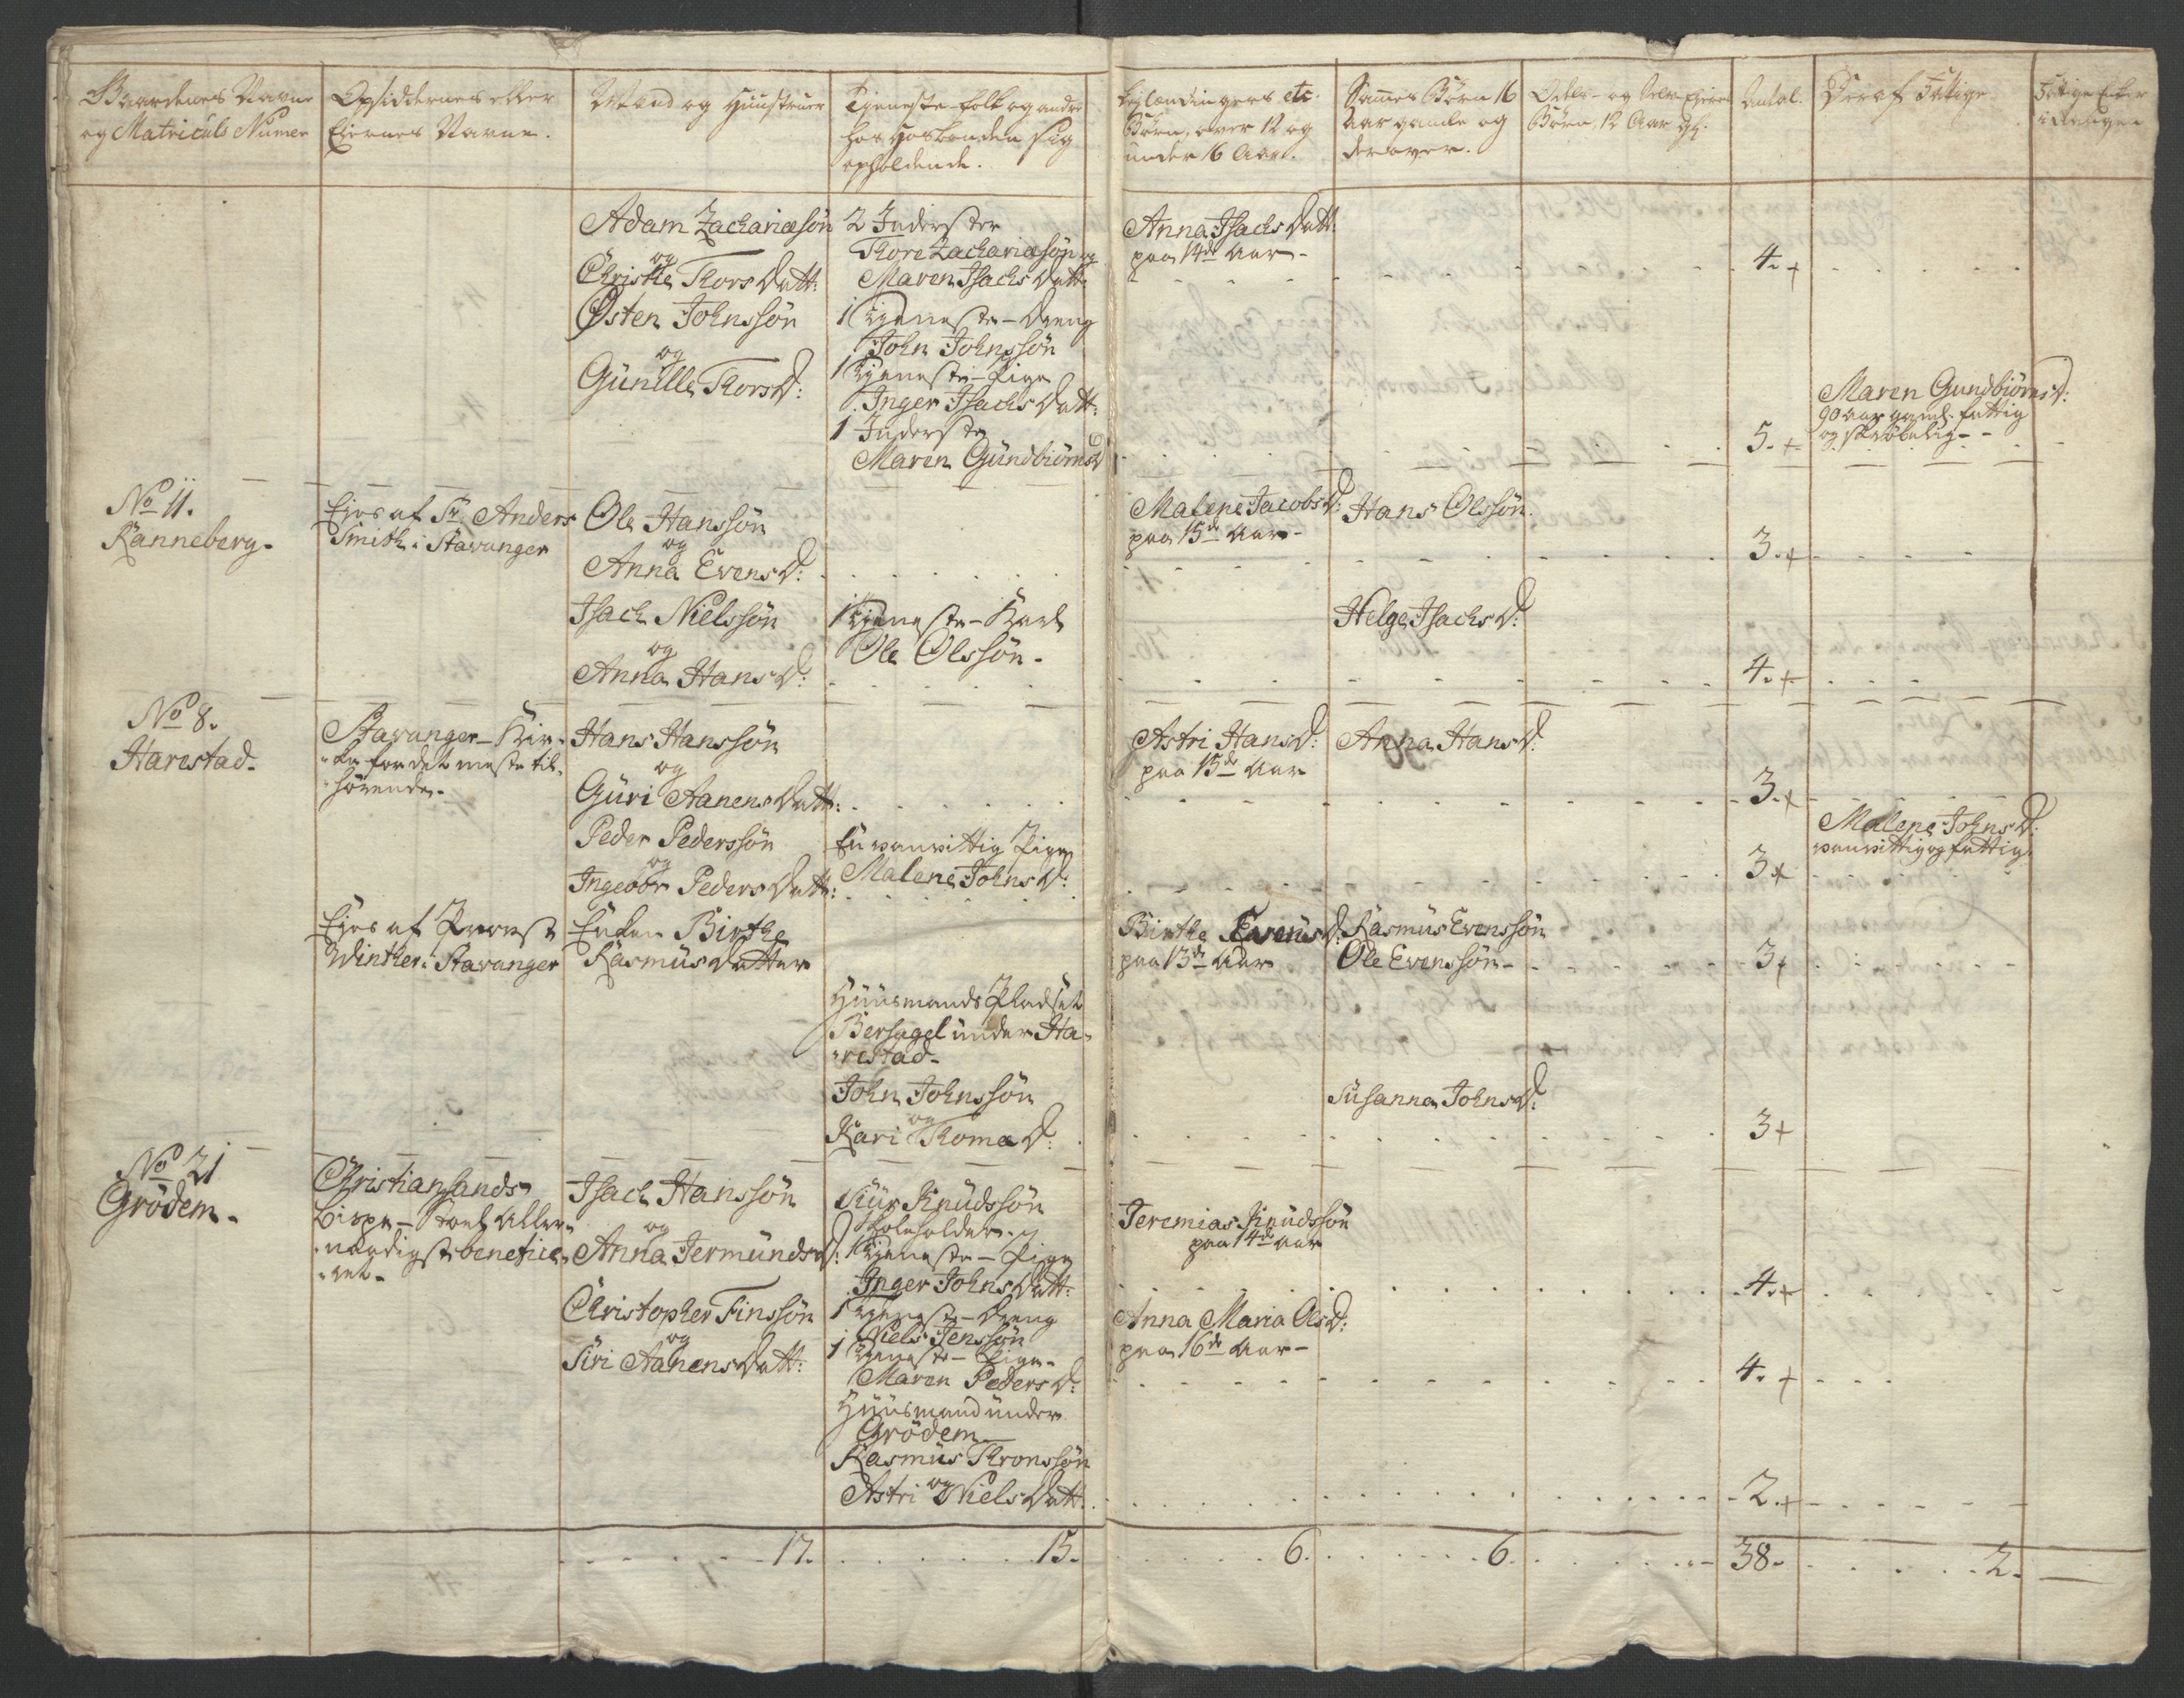 Gaardenes Navne
og Matriculs Numer
Opsiddernes eller
Eiernes Navne.
Mænd og Huustruer
Tjeneste-folk og andre
hos Hosbonden sig
opholdende.
Lejlændingers etc.
Børn, over 12 og
under 16 Aar.
Sammes Børn 16
Aar gamle og
derover.
Odels- og Selv-Ejeres
Børn, 12 Aar
Antal.
Deraf Fattige
Adam Zachariæsøn
og
Christle Thors Datt:
2 Inderster
Thore Zachariæsøn og
Maren Isachs Datt:
Anna Isachs Datt:
paa 14de Aar -
4. +
Østen Johnssøn
og
Gunille Thors D:
1 Tjeneste-Dreng
John Johnssøn
1 Tjeneste-Pige
Inger Isachs Datt:
1 Inderste
Maren Gundbiørns D
5. +
Maren Gundbiørns D:
90 Aar gaml. fattig
og skrøbelig -
No 11.
Ranneberg.
Ejes af Sr. Anders
Smith i Stavanger
Ole Hanssøn
og
Anna Evens D:
Malene Jacobs D:
paa 15de Aar -
Hans Olssøn.
3. +
Isach Nielssøn
og
Anna Hans D:
1 Tjeneste-Karl
Ole Olssøn.
Helge Isachs D:
4. +
No 8.
Harestad.
Stavanger-Kir-
-ke for det meste til-
-hørende.
Hans Hanssøn
og
Guri Aanens Datt:
Astri Hans D:
paa 15de Aar
Anna Hans D:
3. +
Peder Pederssøn
og
Ingebor Peders Datt:
En vanvittig Pige
Malene Johns D:
3 +
Malene Johns D:
vanvittig og fattig.
Ejes af Provst
Winther i Stavanger
Enken Birthe
Rasmus Datter
Birthe Evens D:
paa 13de Aar
Rasmus Evenssøn
Ole Evenssøn -
3 +
Huusmands Pladset
Bersagel under Ha-
-restad.
John Johnssøn
og
Kari Thomæ D:
Susanna Johns D:
3 +
No 21
Grødem.
Christiansands
Bispe-Stoel Aller-
-naadigst benefice-
-ret.
Isach Hanssøn
og
Anna Jermunds D:
Siur Knudssøn
Skoleholder. og
1 Tjeneste-Pige
Inger Johns Datt:
Jeremias Knudssøn
paa 14de Aar
4. +
Christopher Finssøn
og
Siri Aanens Datt:
1 Tjeneste-Dreng
Niels Jenssøn
1 Tjeneste-Pige.
Maren Peders D:
Anna Maria Ols D:
paa 16de Aar -
4. +
Huusmand under
Grødem
Rasmus Thronssøn
og
Astri Niels Datt.
2. +
17.
15.
6.
6.
38.
2.